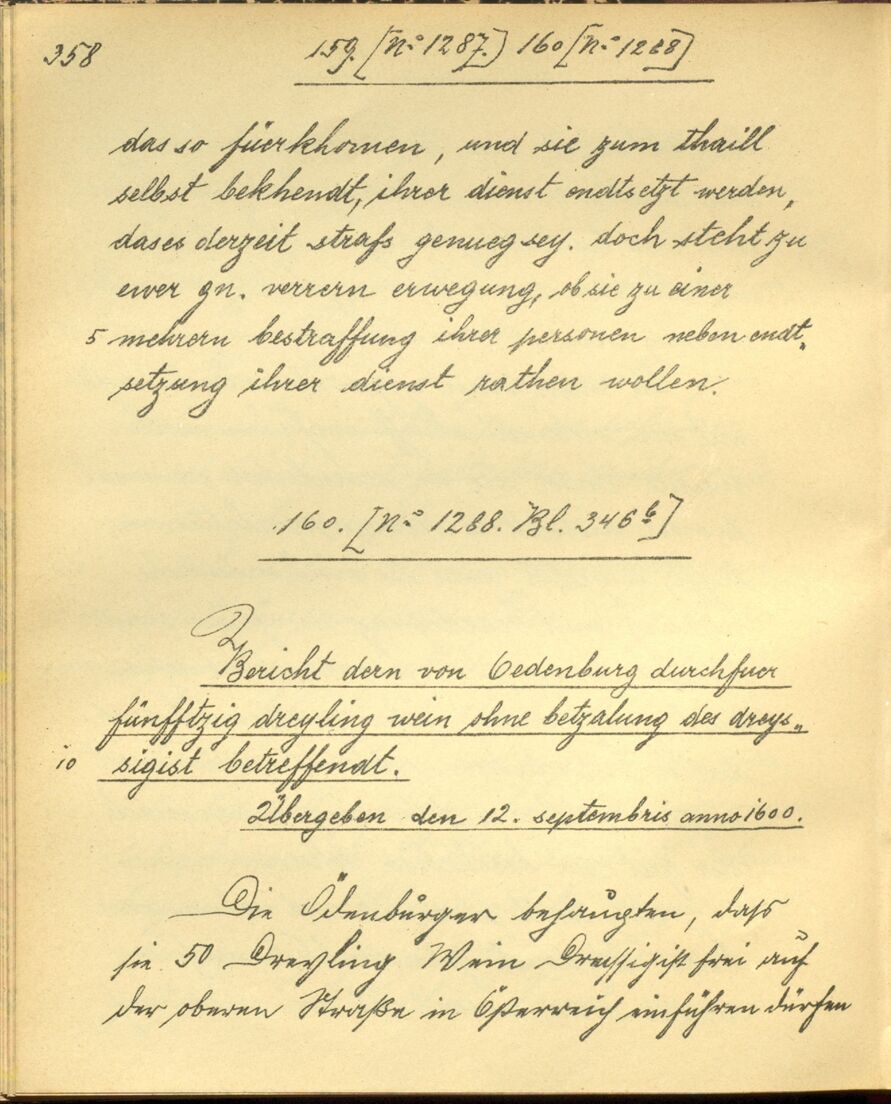 358
159. [No 1287.] 160 [No 1288]
das so füerkhomen, und sie zum thaill
selbst bekhendt, ihrer dienst endtsetzt werden,
das es derzeit strafs genueg sey. doch steht zu
ewer gn. verrern erwegung, ob sie zu einer
5 mehrern bestraffung ihrer personen neben endt„
setzung ihrer dienst rathen wollen.
160. [No 1288. Bl. 346b]
Bericht dern von Oedenburg durchfuer
fünfftzig dreyling wein ohne betzalung des dreys„
10 sigist betreffendt.
Übergeben den 12. septembris anno 1600.
Die Ödenburger behaupten, dass
sie 50 Dreyling Wein Dreissigist frei auf
der oberen Straße in Österreich einführen dürfen